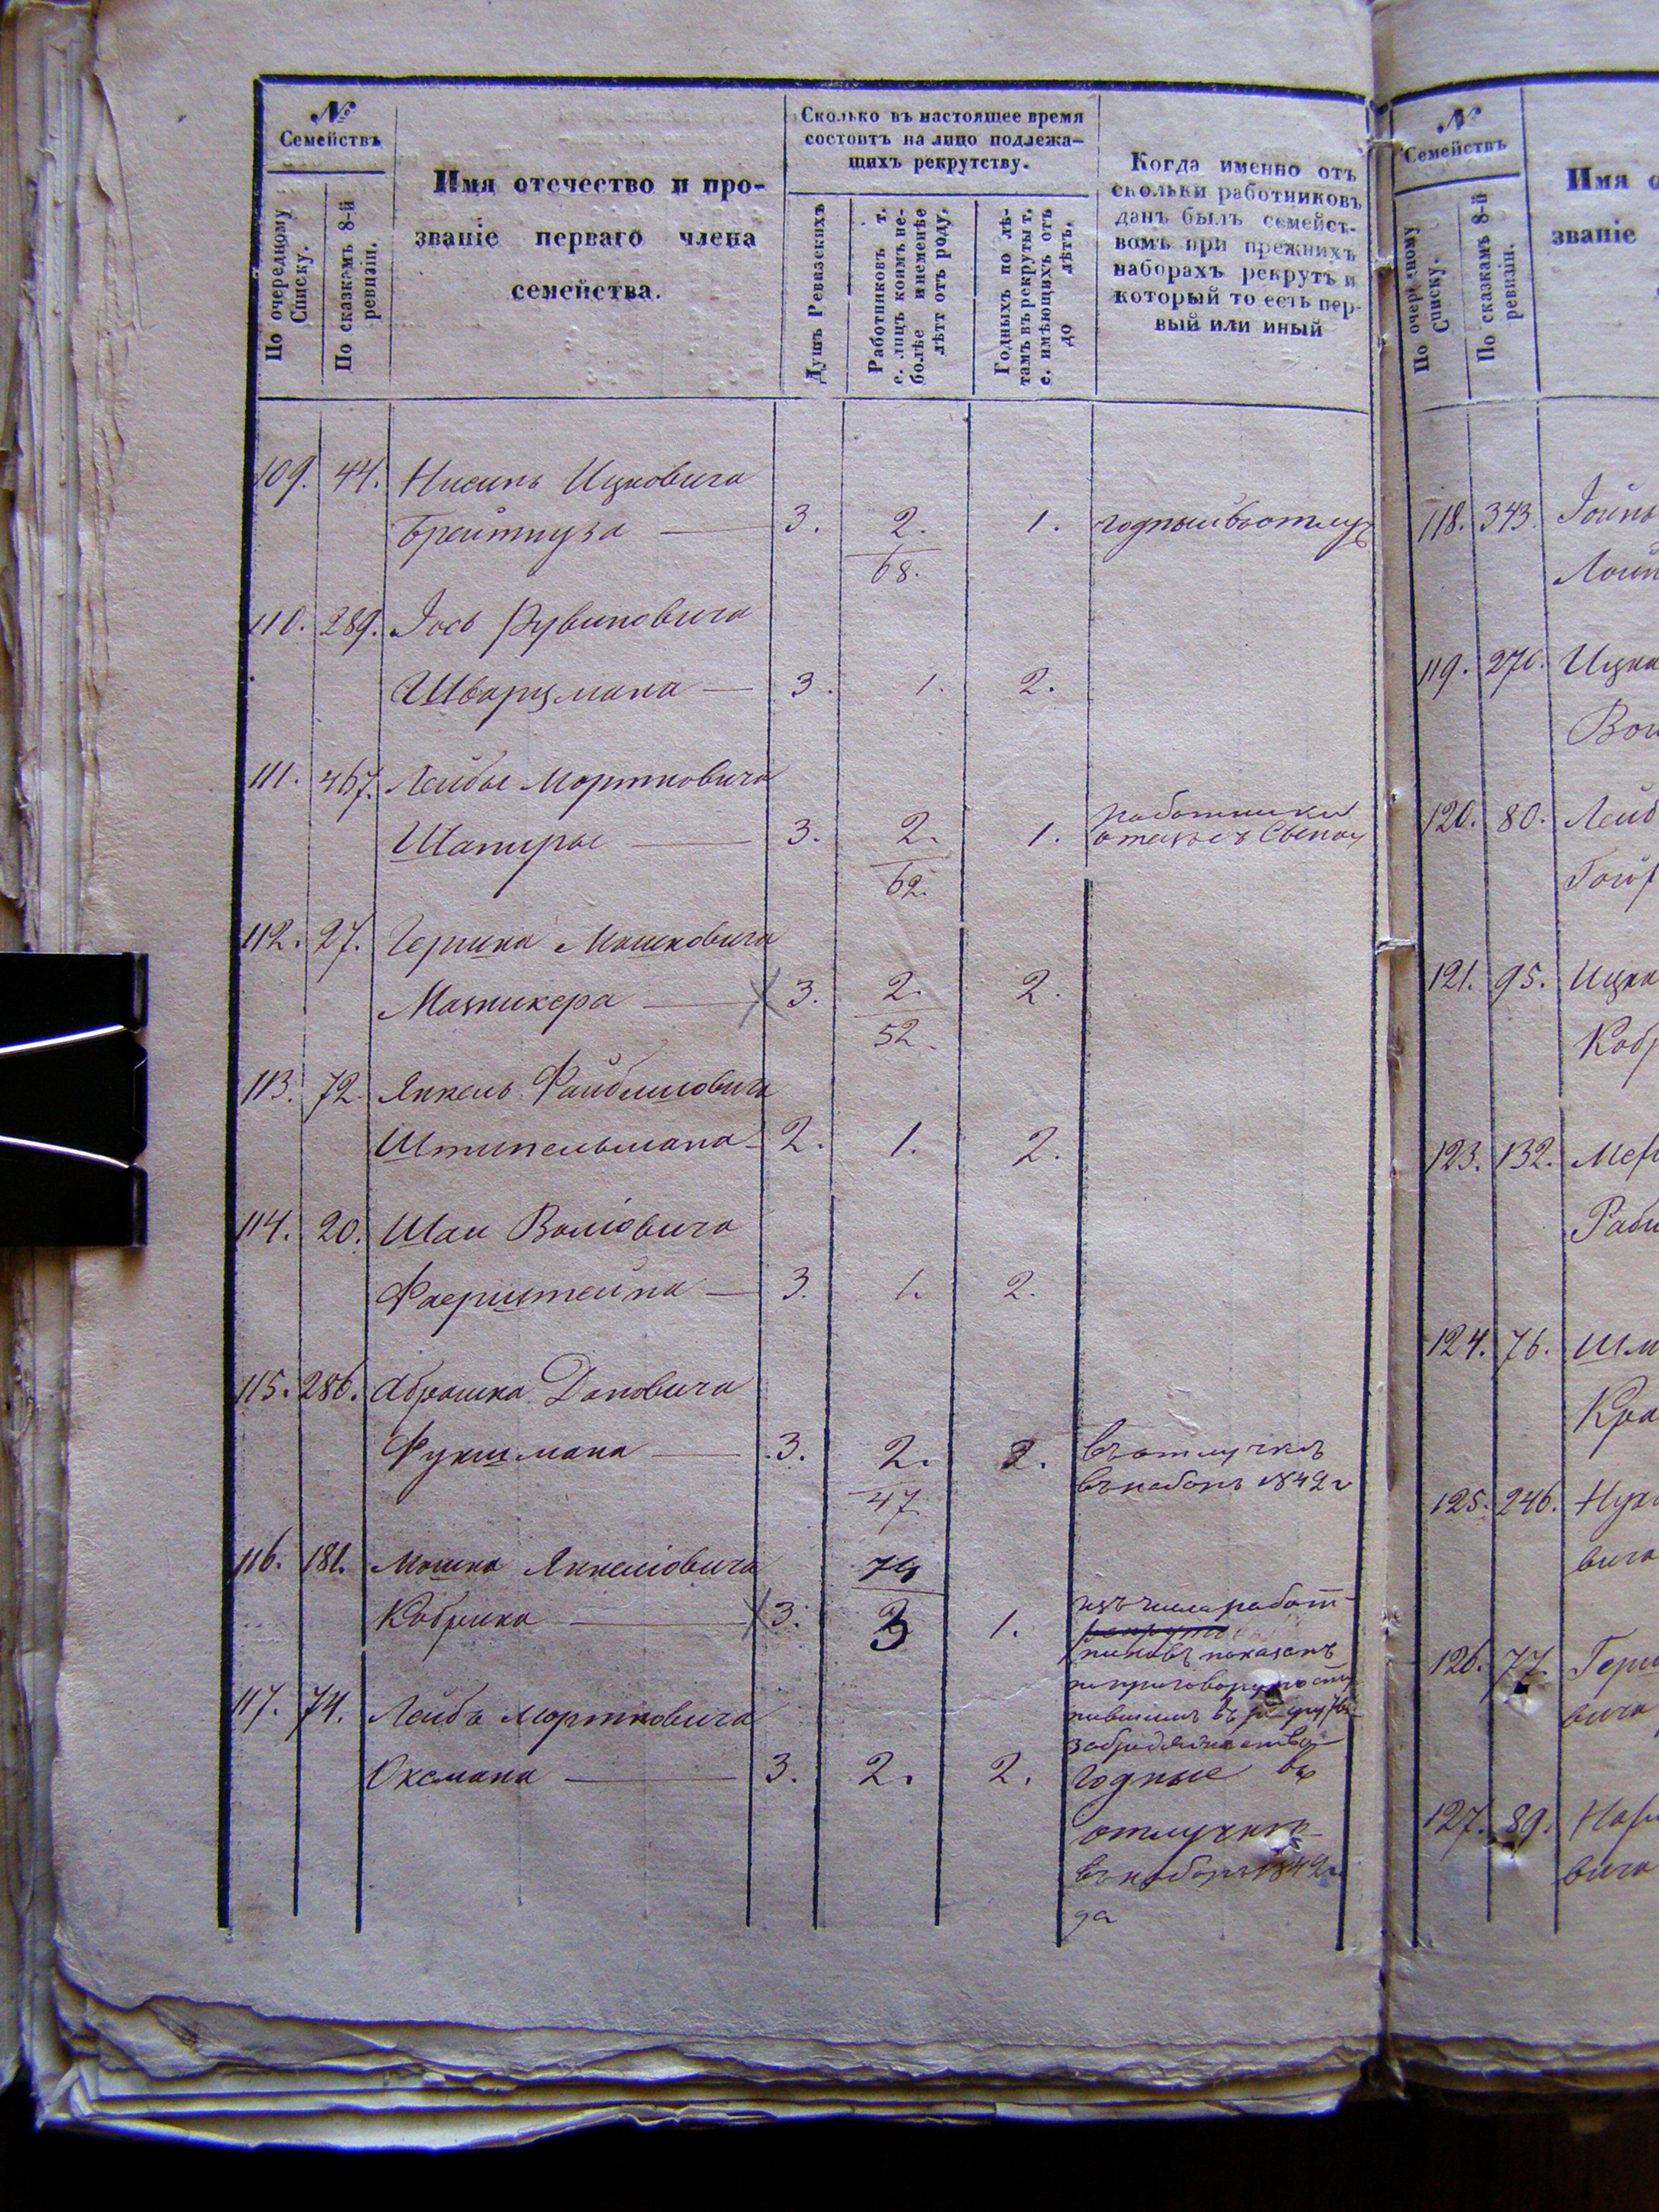 №
Семействъ
По очередному
Списку.
По сказкамъ 8-й
ревизіи.
Имя отечество и про-
званіе перваго члена
семейства.
Сколько въ настоящее время
состоитъ на лицо подлежа-
щихъ рекрутству.
Душъ Ревизскихъ
Работниковъ т.
е. лицъ коимъ не-
болѣе и неменѣе
лѣтт отъ роду.
Годныхъ по лѣ-
тамъ въ рекруты т.
е. имѣющихъ отъ
до лѣтъ.
Когда именно отъ
скольки работниковъ
данъ былъ семейст-
вомъ при прежнихъ
наборахъ рекрутъ и
который то есть пер-
вый или иный
109. 44. Нисинь Ицковича
Брейтпуза 3. 2. 1. годный въ отлуч
68.
110. 289. Іось Рувиновича
Шварцмана 3. 1. 2.
111. 467. Лейбы Мортковича
работники
Шапиры 3. 2. 1.
62.
112. 27. Гершка Мошковича
Мазникера 3. 2. 2.
52.
113. 72. Янкель Файбишовича
Штипельмана 2. 1. 2.
114. 20. Шаи Воліовича
Фаерштейна 3. 1. 2.
115. 286. Абрашка Дановича
Фукшмана 3. 2. 2. въ отлучкѣ
въ наборъ 1842 г
47
116. 181. Мошка Янкеліовича
Кобрика 3. 3 1. изъ числа работ-
никовъ показанъ
по приговору
117. 74. Лейбъ Мортковича
Оксмана 3. 2. 2. годные въ
отлучкѣ
въ наборъ 1842 г
да
№
Семействъ
По очередному
Списку.
По сказкамъ 8-й
ревизіи.
Имя о
званіе
118. 343. Іойнь
119. 276. Ицка
120. 80. Лейб
121. 95. Ицка
Кобр
123. 132.
Раби
124. 76. Шм
Кра
125. 246. Нух
вича
126. 77. Герш
вича
127. 89.
вича